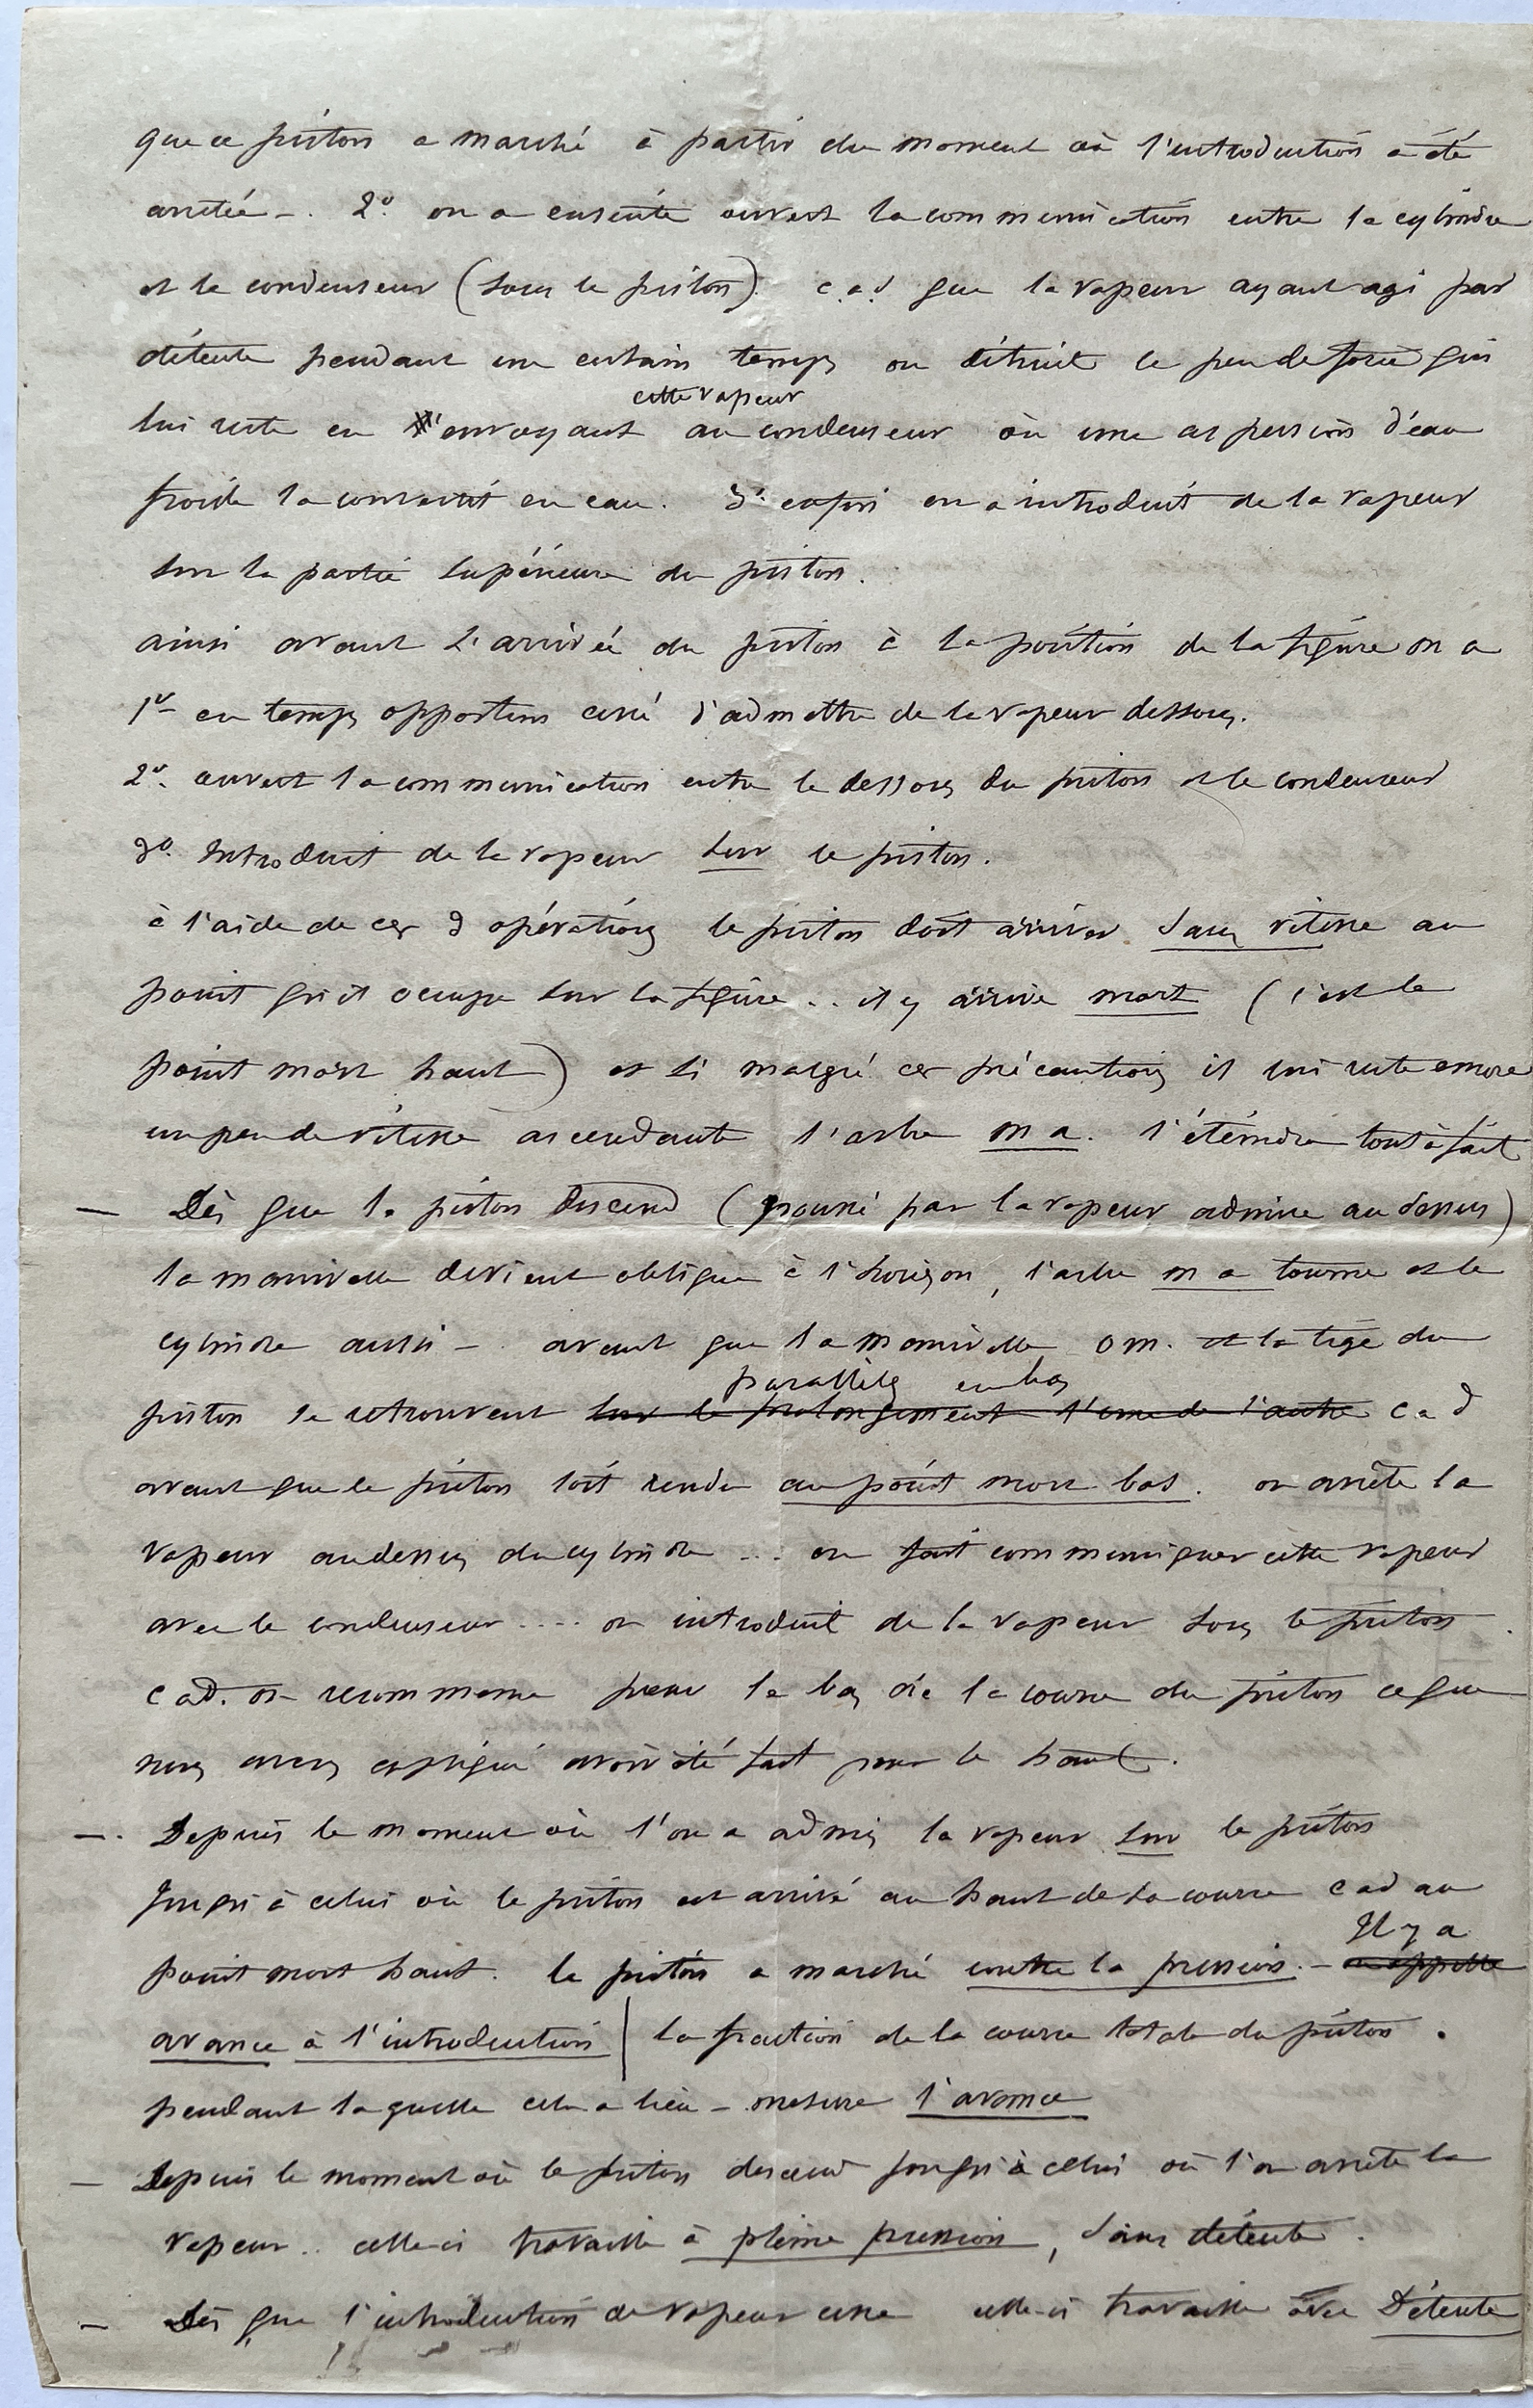 que ce piston a marché à partir du moment où l'introduction a été
arrêtée -. 2° on a ensuite ouvert la communication entre le cylindre
et le condenseur (sous le piston). c.a.d que la vapeur ayant agi par
détente pendant un certain temps on détruit le peu de force qui
cette vapeur
lui reste en envoyant au condenseur où une aspersion d'eau
froide la convertit en eau. 3° enfin on a introduit de la vapeur
sur la partie supérieure du piston.
ainsi avant l'arrivée du piston à la position de la figure on a
1° en temps opportun cessé d'admettre de la vapeur dessous.
2°. ouvert la communication entre le dessous du piston et le condenseur
3°. Introduit de la vapeur sur le piston.
à l'aide de ces 3 opérations le piston doit arriver sans vitesse au
point qu'il occupe sur la figure .. il y arrive mort (c'est le
point mort haut) et si malgré ces précautions il lui reste encore
un peu de vitesse ascendante l'arbre m a. l'éteindra tout à fait
— Dès que le piston descend (poussé par la vapeur admise au dessus)
la manivelle devient oblique à l'horizon, l'arbre m a tourne et le
cylindre aussi - avant que la manivelle o m. et la tige du
parallèles en bas
piston se retrouvent sur le prolongement l'une de l'autre c a d
avant que le piston soit rendu au point mort bas. on arrête la
vapeur au dessus du cylindre ... on fait communiquer cette vapeur
avec le condenseur .... on introduit de la vapeur sous le piston.
c a d. on recommence pour le bas de la course du piston ce que
nous avons expliqué avoir été fait pour le haut.
—. Depuis le moment où l'on a admis la vapeur sur le piston
jusqu'à celui où le piston est arrivé au haut de sa course c a d au
Il y a
point mort haut. le piston a marché contre la pression. - on appelle
avance à l'introduction | la fraction de la course totale du piston.
pendant laquelle cela a lieu - mesure l'avance
— Depuis le moment où le piston descend jusqu'à celui où l'on arrête la
vapeur.. celle-ci travaille à pleine pression, sans détente.
— Dès que l'introduction de vapeur cesse celle-ci travaille avec Détente